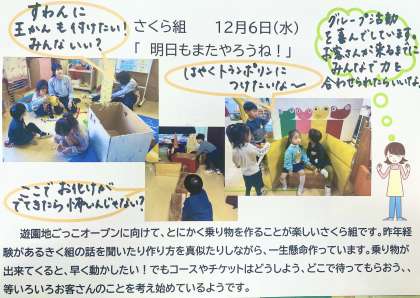 すわんに
王かんも付けたい!
みんないい?
さくら組　　12月6日(水)
「 明日もまたやろうね!」
グループ活動
を喜んでしています。
お客さんが来るまでに
みんなで力を
合わせられたらいいな。
はやくトランポリンに
つけたいな〜
ここで お化けが
でてきたら怖いんじゃない?
遊園地ごっこオープンに向けて、とにかく乗り物を作ることが楽しいさくら組です。昨年経
験があるきく組の話を聞いたり作り方を真似たりしながら、一生懸命作っています。乗り物が
出来てくると、早く動かしたい!でもコースやチケットはどうしよう、どこで待ってもらおう、、
等いろいろお客さんのことを考え始めているようです。